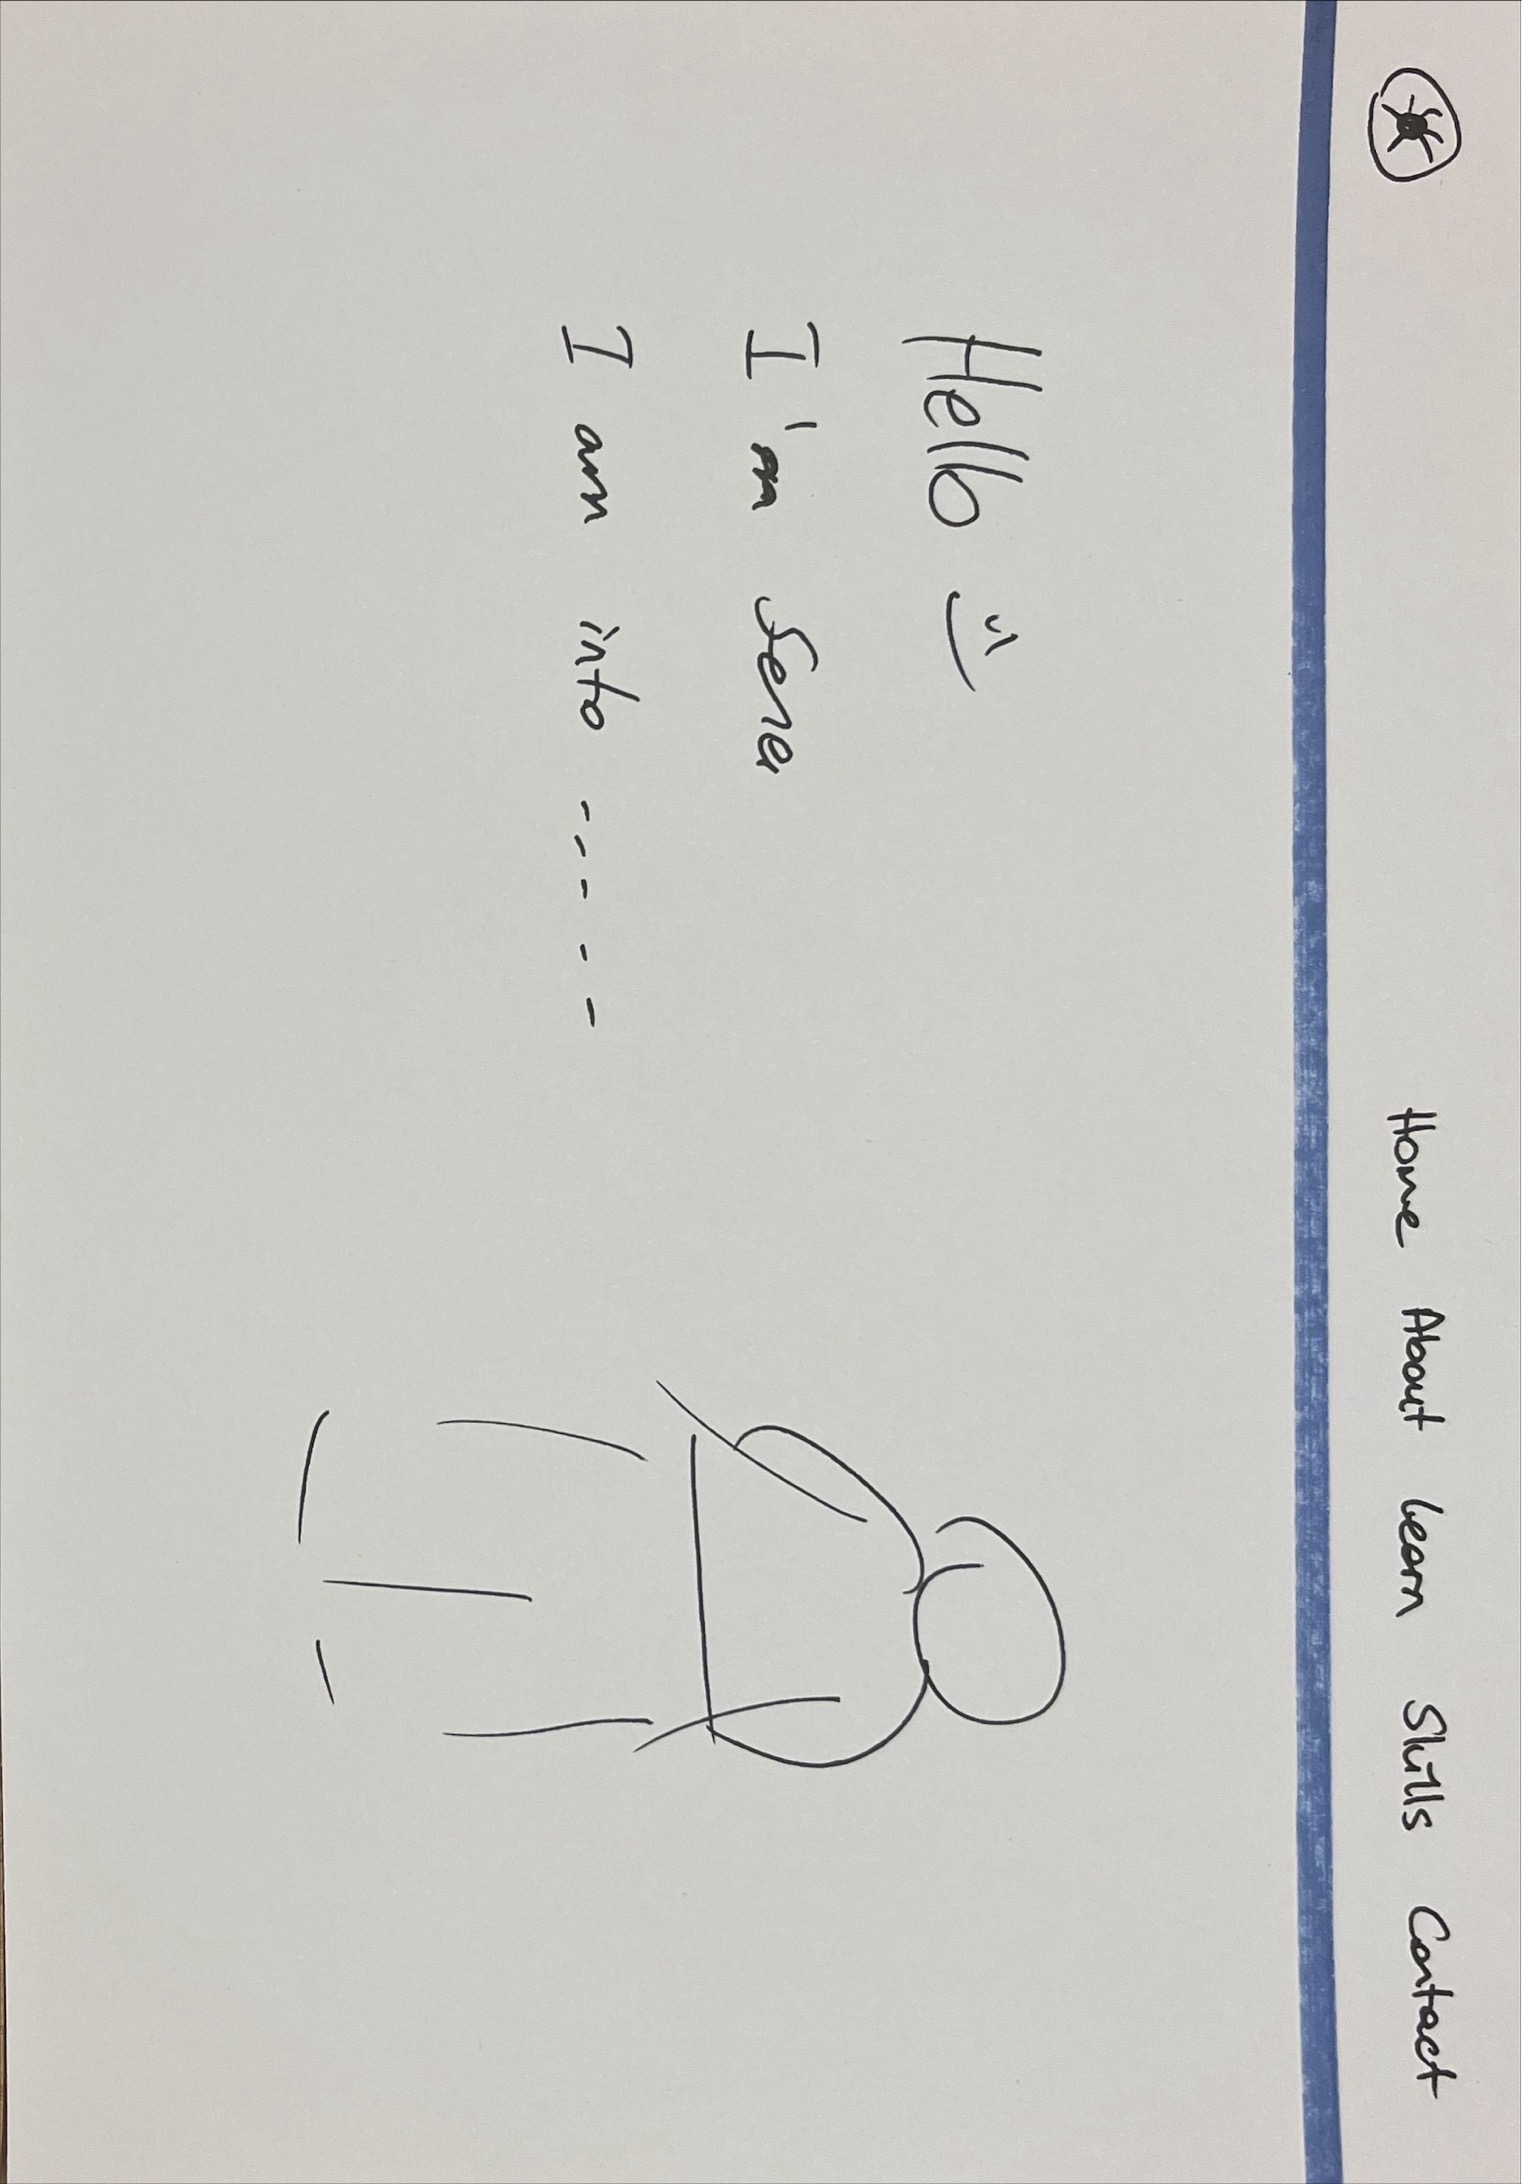 Home About Learn Skills Contact
Hello
I'm Sena
I am into -----